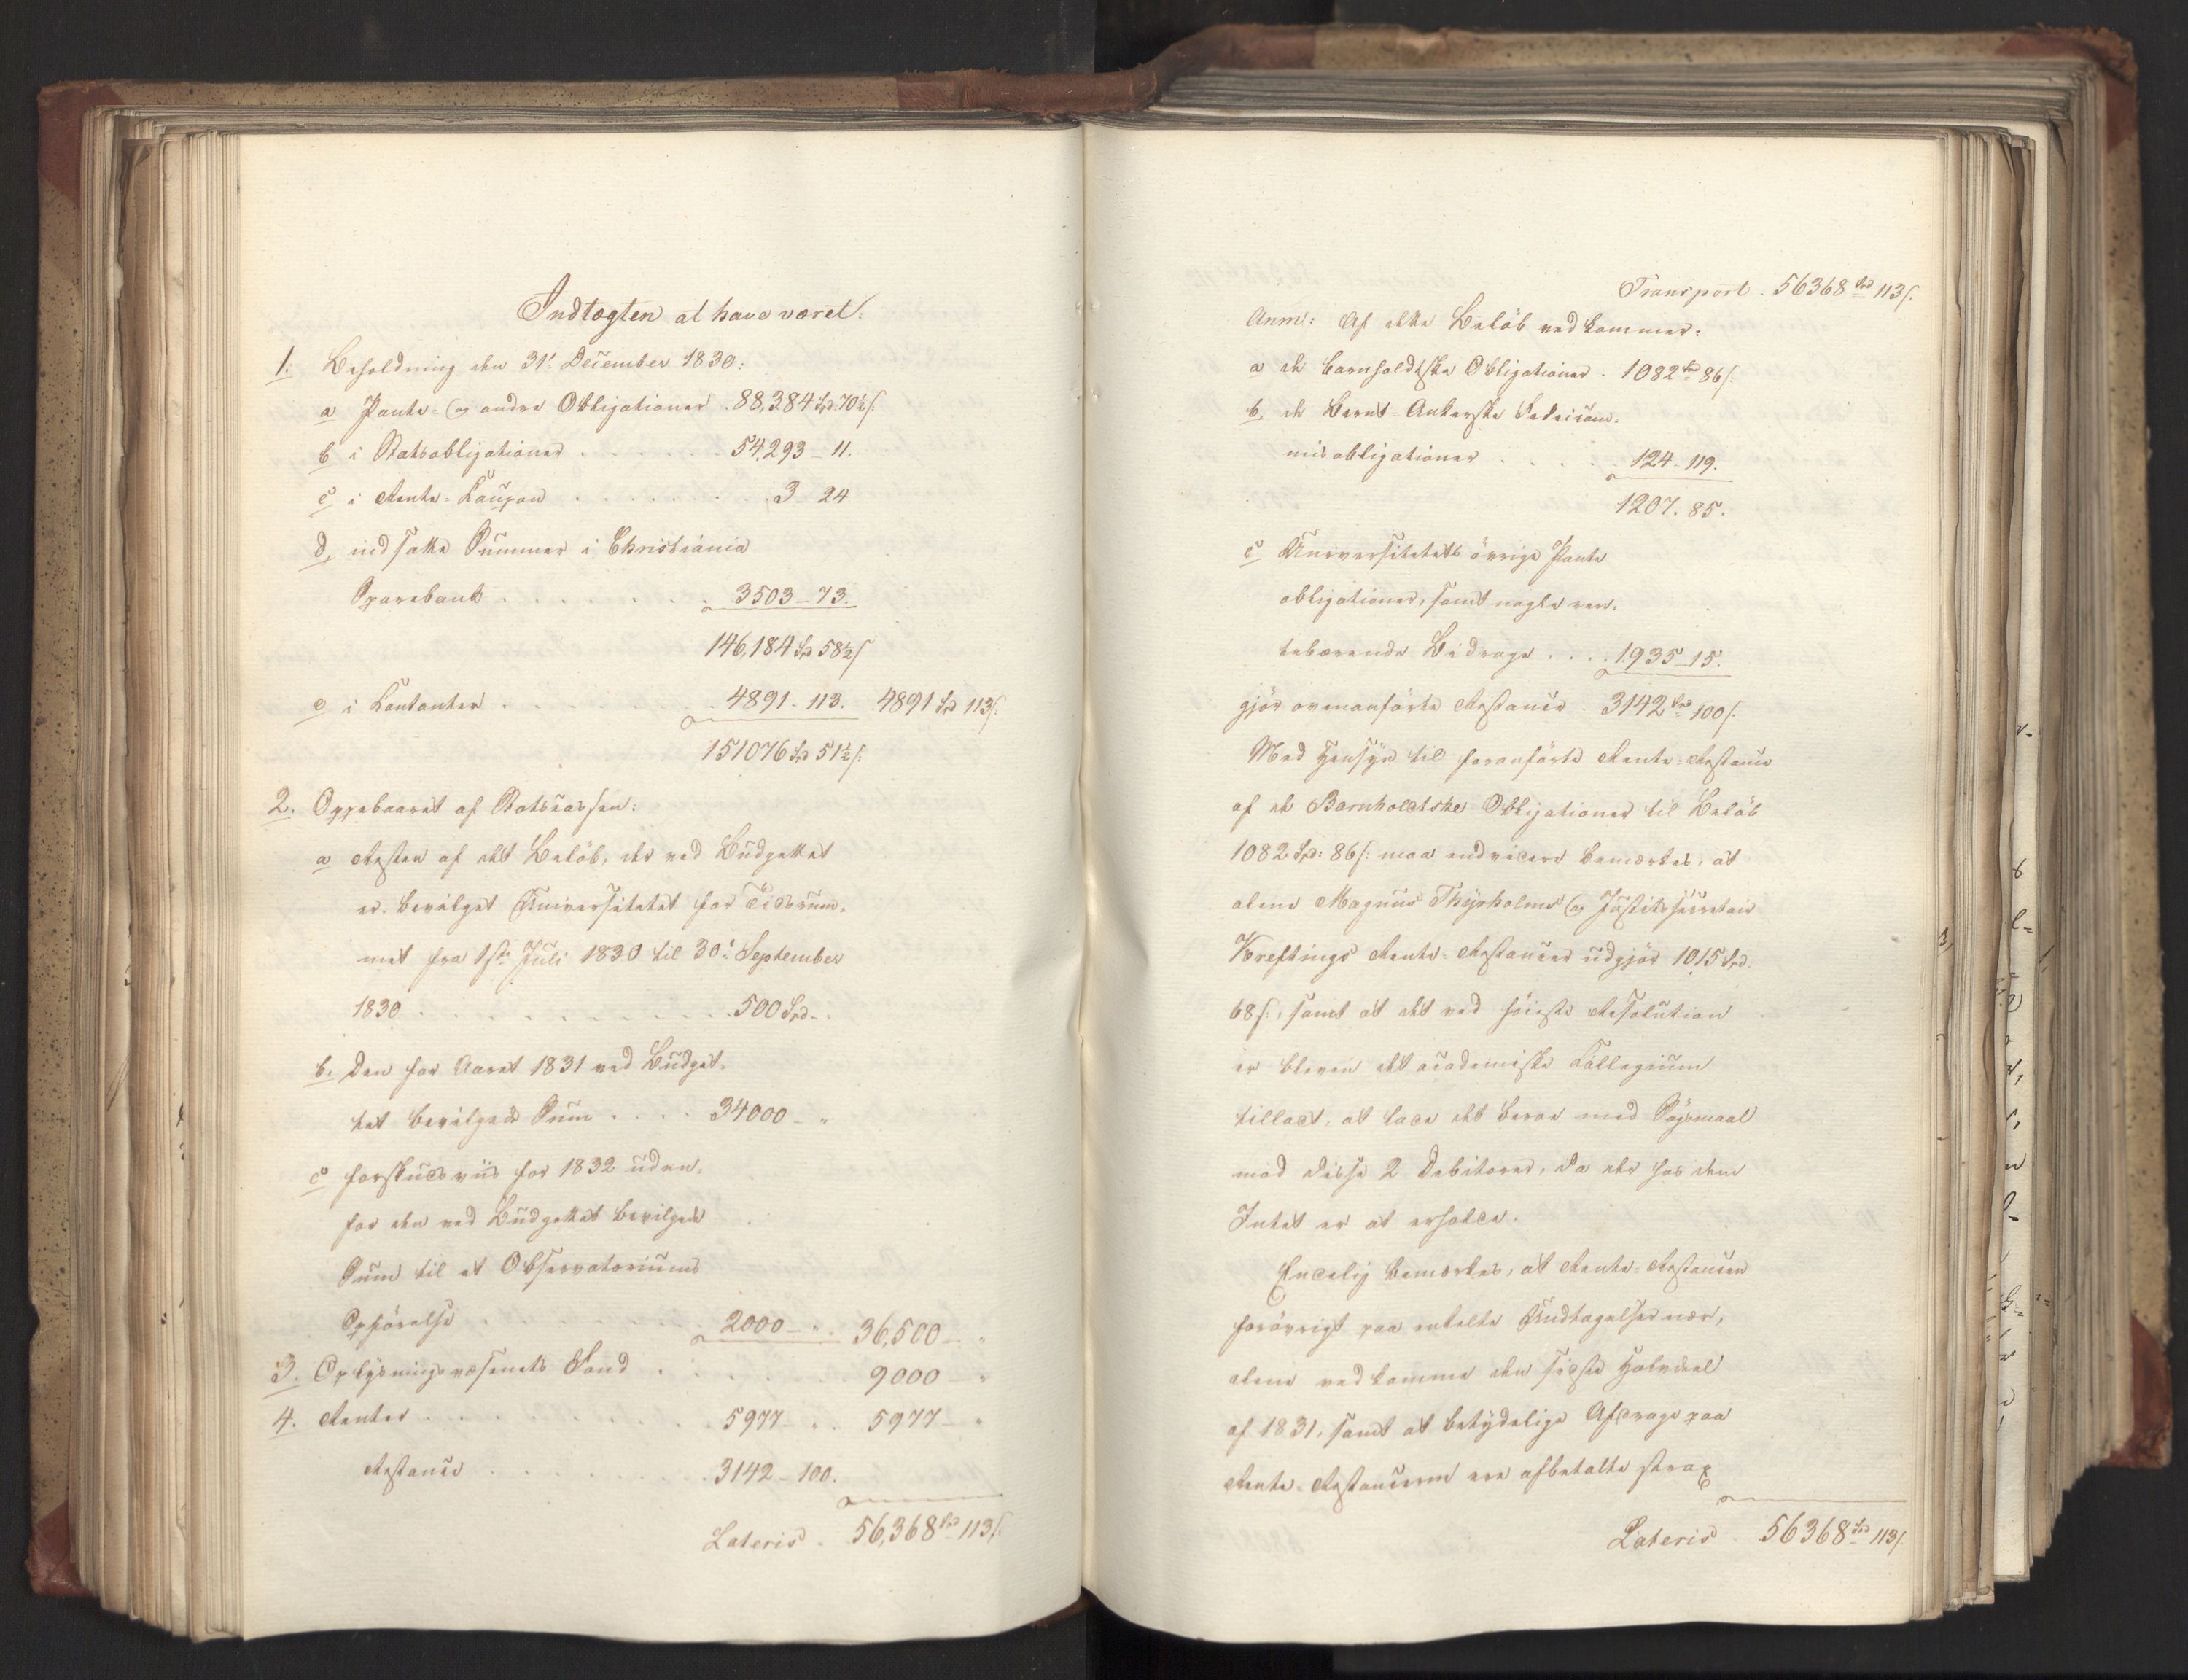 Indtægten at have været:
1. Beholdning den 31' December 1830:
a Pante- og andre Obligationer . 88,384 Spd 70½ s.
b i Statsobligationer . . . . . . 54,293 - 11.
c i Rente-Coupon . . . . . . . 3 - 24
d, indsatte Summer i Christiania
Sparebank . . . . . . . 3503 - 73.
146,184 Spd 58½ s
e i Contanter . . . . . . 4891 - 113. 4891 Spd 113 s.
151076 Spd 51½ s.
2. Oppebaaret af Statscassen:
a Resten af det Beløb, der ved Budgettet
er bevilget Universitetet for Tidsrum-
met fra 1ste Juli 1830 til 30' September
1830 . . . . . . . . . . 500 Spd -
b. Den for Aaret 1831 ved Budget-
tet bevilgede Sum . . . . 34000 - "
c forskudsviis for 1832 uden-
for den ved Budgettet bevilgede
Sum til et Observatoriums
Opførelse . . . . . . 2000 - " . 36,500 - "
3. Oplysningsvæsenets Fond . . . . . . 9000 - "
4. Renter . . . . . . . . 5977 - " . 5977 - "
Restance . . . . . . . . 3142 - 100.
Lateris . 56,368 Spd 113 s.
Transport . 56368 Spd 113 s.
Anm: Af dette Beløb vedkommer:
a de barnholdtske Obligationer . 1082 Spd 86 s.
b, de Bernt-Ankerske Fideicom-
misobligationer . . . . . 124 - 119.
1207. 85.
c Universitetets øvrige Pante
obligationer, samt nogle ren-
tebærende Bidrage . . . . 1935 - 15.
gjør ovenanførte Restance . 3142 Spd 100 s.
Med Hensyn til foranførte Rente-Restance
af de Barnholdtske Obligationer til Beløb
1082 Spd: 86 s: maa endvidere bemærkes, at
alene Magnus Thyrholms og Justitssecretair
Kreftings Rente-Restancer udgjør 1015 Spd.
68 s:, samt at det ved høieste Resolution
er bleven det academiske Collegium
tilladt, at lade det beroe med Søgsmaal
mod disse 2 Debitorer, da der hos dem
Intet er at erholde.
Endelig bemærkes, at Rente-Restancen
forøvrigt paa enkelte Undtagelser nær,
alene vedkomme den sidste Halvdeel
af 1831, samt at betydelige Afdrage paa
Rente-Restancerne ere afbetalte strax
Lateris . 56368 Spd 113 s.